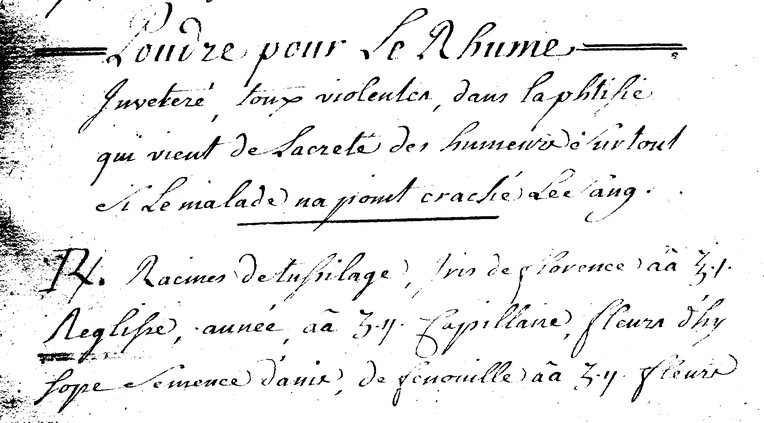 Poudre pour Le Rhume
Inveteré, toux violentes, dans la phtisie
qui vient de Lacreté des humeurs et surtout
si Le malade na point craché Lee sang.
R/. Racines de tussilage, Iris de florence aã ʒ.j.
Reglisse, aunée, aã ʒ.ij. Capillaire, fleurs d'hy
sope Semence d'anis, de fenouille aã ʒ.ij. fleurs